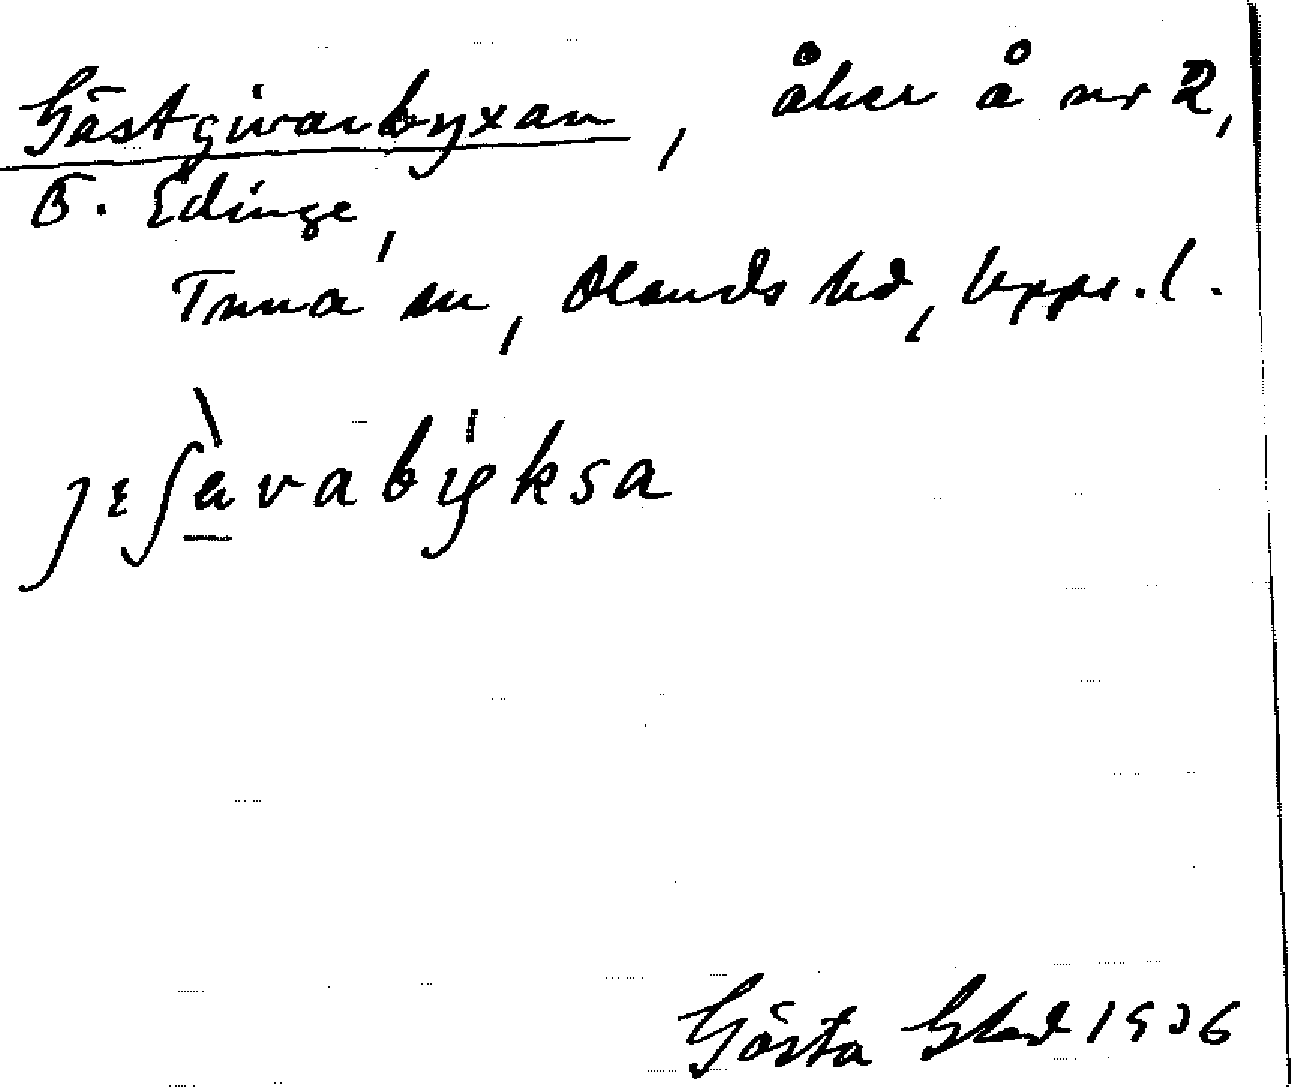 Gästgivarbyxan, åker å nr 2,
Ö. Edinge,
Tuna sn, Olands hd, Upps. l.
jɛʃàvabyksa
Gösta Glad 1936